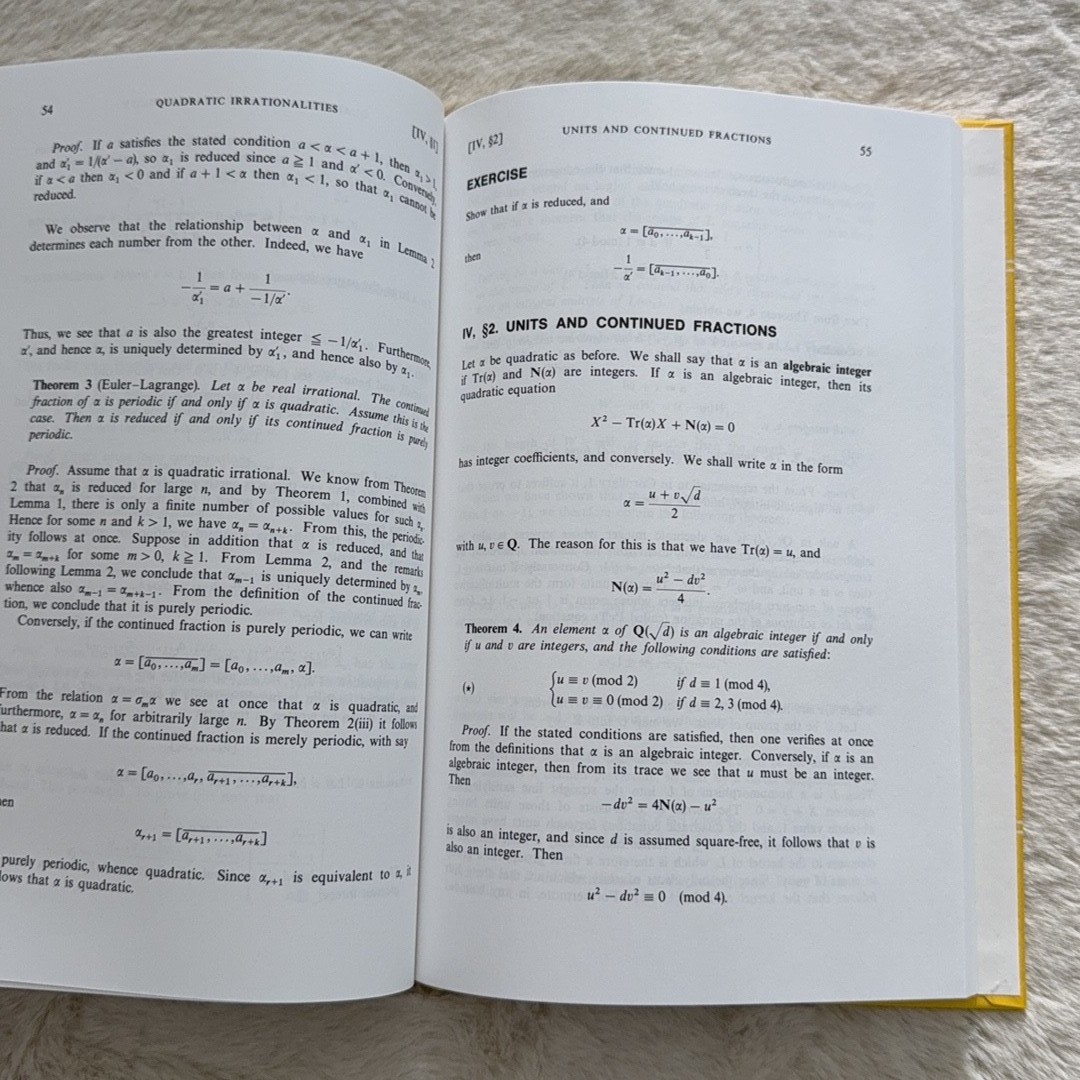 54
QUADRATIC IRRATIONALITIES
[IV, §1]
Proof. If a satisfies the stated condition a < α < a + 1, then α₁ > 1,
and α′₁ = 1/(α′ − a), so α₁ is reduced since a ≧ 1 and α′ < 0. Conversely,
if α < a then α₁ < 0 and if a + 1 < α then α₁ < 1, so that α₁ cannot be
reduced.
We observe that the relationship between α and α₁ in Lemma 2
determines each number from the other. Indeed, we have
−1/α′₁ = a + 1/(−1/α′).
Thus, we see that a is also the greatest integer ≦ −1/α′₁. Furthermore,
α′, and hence α, is uniquely determined by α′₁, and hence also by α₁.
Theorem 3 (Euler–Lagrange). Let α be real irrational. The continued
fraction of α is periodic if and only if α is quadratic. Assume this is the
case. Then α is reduced if and only if its continued fraction is purely
periodic.
Proof. Assume that α is quadratic irrational. We know from Theorem
2 that αₙ is reduced for large n, and by Theorem 1, combined with
Lemma 1, there is only a finite number of possible values for such αₙ.
Hence for some n and k > 1, we have αₙ = αₙ₊ₖ. From this, the periodic-
ity follows at once. Suppose in addition that α is reduced, and that
αₘ = αₘ₊ₖ for some m > 0, k ≧ 1. From Lemma 2, and the remarks
following Lemma 2, we conclude that αₘ₋₁ is uniquely determined by αₘ,
whence also αₘ₋₁ = αₘ₊ₖ₋₁. From the definition of the continued frac-
tion, we conclude that it is purely periodic.
Conversely, if the continued fraction is purely periodic, we can write
α = [a̅₀̅,̅ ̅.̅.̅.̅,̅a̅ₘ̅] = [a₀, ...,aₘ, α].
From the relation α = σₘα we see at once that α is quadratic, and
furthermore, α = αₙ for arbitrarily large n. By Theorem 2(iii) it follows
hat α is reduced. If the continued fraction is merely periodic, with say
α = [a₀, ...,aᵣ, a̅ᵣ̅₊̅₁̅,̅ ̅.̅.̅.̅,̅a̅ᵣ̅₊̅ₖ̅],
en
αᵣ₊₁ = [a̅ᵣ̅₊̅₁̅,̅ ̅.̅.̅.̅,̅a̅ᵣ̅₊̅ₖ̅]
purely periodic, whence quadratic. Since αᵣ₊₁ is equivalent to α, it
lows that α is quadratic.
[IV, §2]
UNITS AND CONTINUED FRACTIONS
55
EXERCISE
Show that if α is reduced, and
α = [a̅₀̅,̅ ̅.̅.̅.̅,̅a̅ₖ̅₋̅₁̅],
then
−1/α′ = [a̅ₖ̅₋̅₁̅,̅ ̅.̅.̅.̅,̅a̅₀̅].
IV, §2. UNITS AND CONTINUED FRACTIONS
Let α be quadratic as before. We shall say that α is an algebraic integer
if Tr(α) and N(α) are integers. If α is an algebraic integer, then its
quadratic equation
X² − Tr(α)X + N(α) = 0
has integer coefficients, and conversely. We shall write α in the form
α = (u + v√d)/2
with u, v ∈ Q. The reason for this is that we have Tr(α) = u, and
N(α) = (u² − dv²)/4.
Theorem 4. An element α of Q(√d) is an algebraic integer if and only
if u and v are integers, and the following conditions are satisfied:
(⋆) { u ≡ v (mod 2) if d ≡ 1 (mod 4),
u ≡ v ≡ 0 (mod 2) if d ≡ 2, 3 (mod 4).
Proof. If the stated conditions are satisfied, then one verifies at once
from the definitions that α is an algebraic integer. Conversely, if α is an
algebraic integer, then from its trace we see that u must be an integer.
Then
−dv² = 4N(α) − u²
is also an integer, and since d is assumed square-free, it follows that v is
also an integer. Then
u² − dv² ≡ 0 (mod 4).